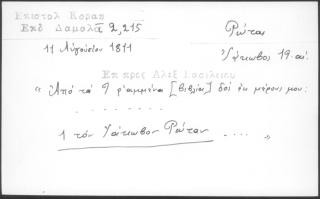 Επιστολ Κοραη
Εκδ Δαμαλᾶ 2,215
Ρώταν
11 Αὐγούστου 1811
Ἰάκωβος 19 αἰ.
Επ προς Αλεξ Βασιλειου
« Ἀπὸ τὰ 9 ῥαμμένα [βιβλία] δὸς ἐκ μέρους μου:
1 τὸν Ἰάκωβον Ρώταν ..... »